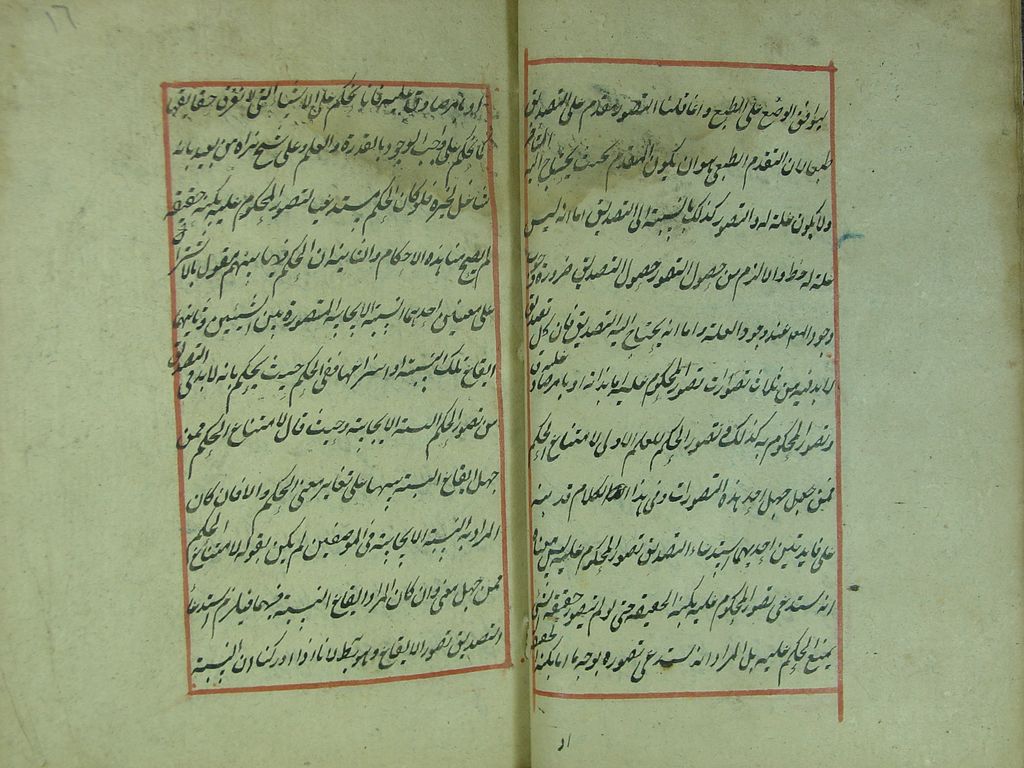 ليوافق الوضع على الطبع وانما قلنا التصور مقدم على التصديق
طبعا لان التقدم الطبعي هو ان يكون المتقدم بحيث يحتاج اليه المتأخر
ولا يكون علة له والتصور كذلك بالنسبة الى التصديق اما انه ليس
علة له فظ والا لزم من حصول التصور حصول التصديق ضرورة وجوب
وجود المعلم عند وجود العلة واما انه يحتاج اليه التصديق فلان كل تصديق
لا بد فيه من ثلاث تصورات تصور المحكوم عليه اما بذاته او بامر صادق عليه
وتصور المحكوم به كذلك وتصور الحكم للعلم الاولى لامتناع الحكم
ممن جهل احد هذه التصورات وفي هذا الكلام قد نبه
على فايدتين احديهما استدعاء التصديق تصور المحكوم عليه ليس معناه
انه يستدعى تصور المحكوم عليه بكنه الحقيقة حتى لو لم يتصور حقيقة الشئ
يمتنع الحكم عليه بل المراد انه يستدعى تصوره بوجه ما اما بكنه الحقيقة
او بامر صادق عليه فانا نحكم على الاشياء التي لا نعرف حقايقها
كما نحكم على واجب الوجود بالقدرة والعلم وعلى شبح نراه من البعيد بانه
شاغل للحيز فلو كان الحكم مستدعيا لتصور المحكوم عليه بكنه حقيقته
لم يصح منا هذه الاحكام والثانية ان الحكم فيما بينهم مقول بالاشتراك
على معنيين احدهما النسبة الايجابية المتصورة بين الشيئين وثانيهما
ايقاع تلك النسبة او انتزاعها ففى الحكم حيث يحكم بانه لا بد في التصديق
من تصور الحكم النسبة الايجابية وحيث قال لامتناع الحكم ممن
جهل ايقاع النسبة تنبيها على تغاير معنى الحكم والا فان كان
المراد به النسبة الايجابية في الموضعين لم يكن لقوله لامتناع الحكم
ممن جهل معنى وان كان المراد ايقاع النسبة فيهما فيلزم استدعاء
التصديق تصور الايقاع وهو بط لانا اذا ادركنا ان النسبة